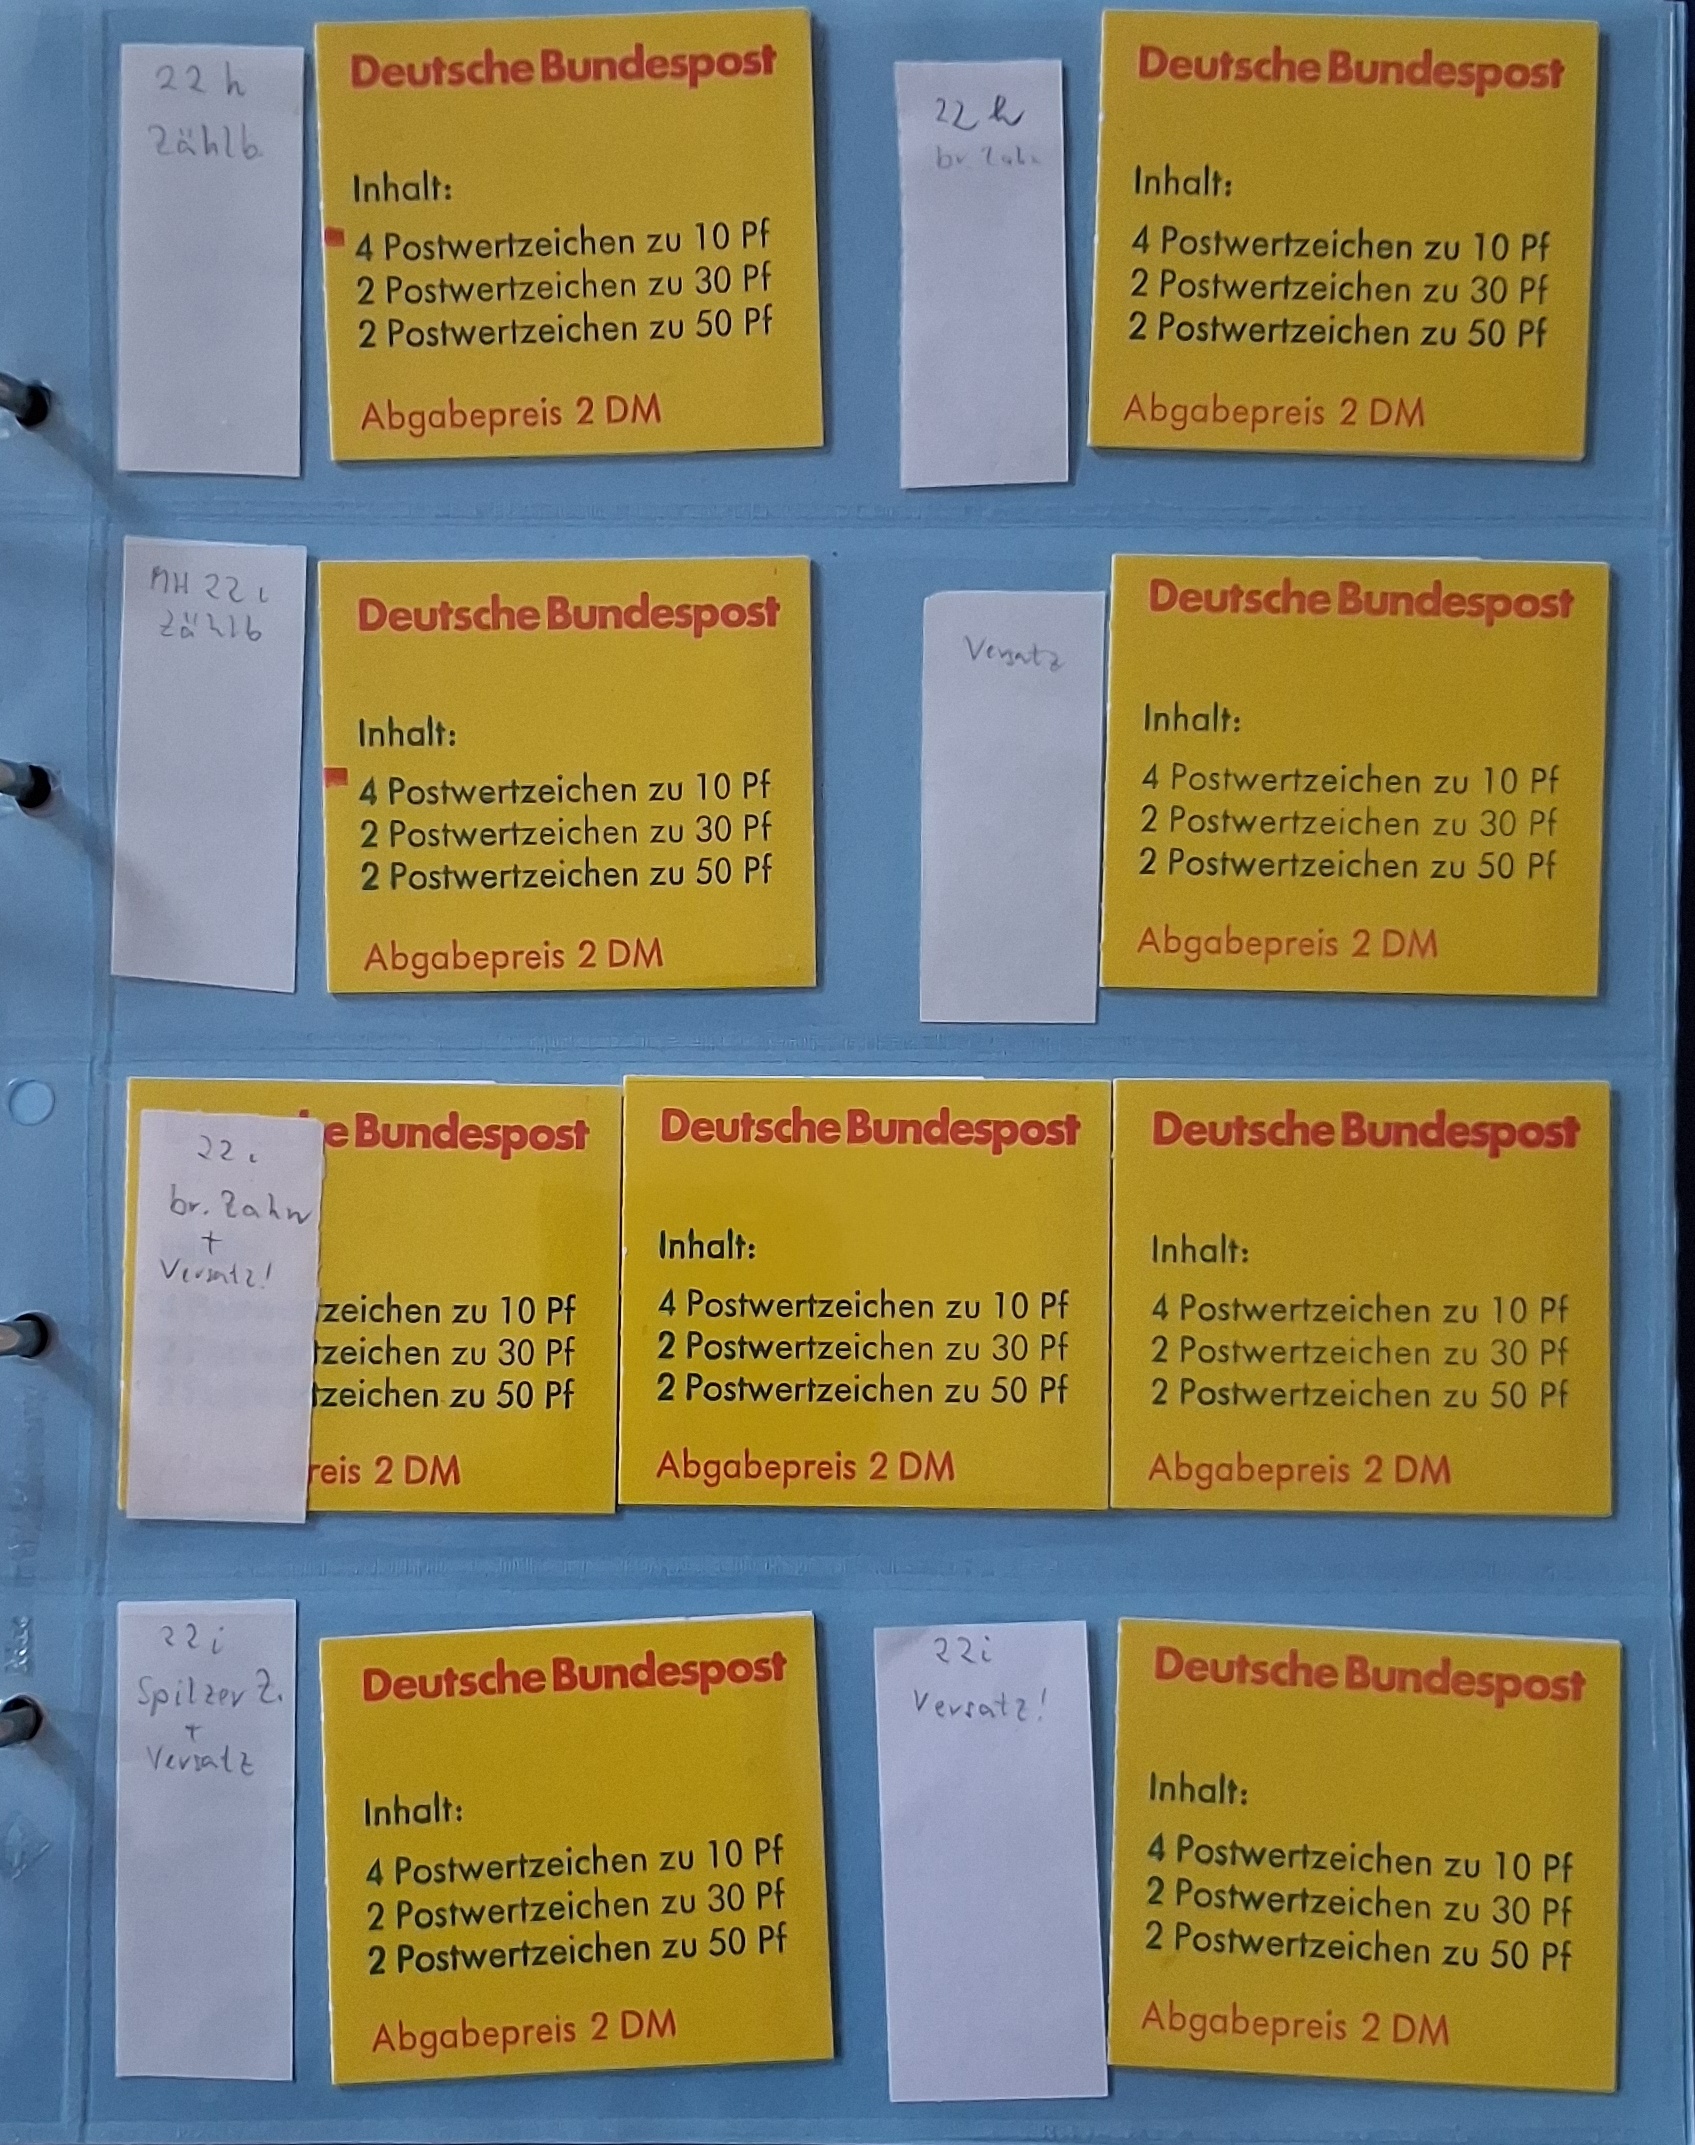 22 h
Zählb.
Deutsche Bundespost
Inhalt:
4 Postwertzeichen zu 10 Pf
2 Postwertzeichen zu 30 Pf
2 Postwertzeichen zu 50 Pf
Abgabepreis 2 DM
22 h
br. Zahn
Deutsche Bundespost
Inhalt:
4 Postwertzeichen zu 10 Pf
2 Postwertzeichen zu 30 Pf
2 Postwertzeichen zu 50 Pf
Abgabepreis 2 DM
MH 22 i
Zählb
Deutsche Bundespost
Inhalt:
4 Postwertzeichen zu 10 Pf
2 Postwertzeichen zu 30 Pf
2 Postwertzeichen zu 50 Pf
Abgabepreis 2 DM
Versatz
Deutsche Bundespost
Inhalt:
4 Postwertzeichen zu 10 Pf
2 Postwertzeichen zu 30 Pf
2 Postwertzeichen zu 50 Pf
Abgabepreis 2 DM
22 i
br. Zahn
+
Versatz!
e Bundespost
zeichen zu 10 Pf
tzeichen zu 30 Pf
tzeichen zu 50 Pf
reis 2 DM
Deutsche Bundespost
Inhalt:
4 Postwertzeichen zu 10 Pf
2 Postwertzeichen zu 30 Pf
2 Postwertzeichen zu 50 Pf
Abgabepreis 2 DM
Deutsche Bundespost
Inhalt:
4 Postwertzeichen zu 10 Pf
2 Postwertzeichen zu 30 Pf
2 Postwertzeichen zu 50 Pf
Abgabepreis 2 DM
22 i
Spitzer Z.
+
Versatz
Deutsche Bundespost
Inhalt:
4 Postwertzeichen zu 10 Pf
2 Postwertzeichen zu 30 Pf
2 Postwertzeichen zu 50 Pf
Abgabepreis 2 DM
22i
Versatz!
Deutsche Bundespost
Inhalt:
4 Postwertzeichen zu 10 Pf
2 Postwertzeichen zu 30 Pf
2 Postwertzeichen zu 50 Pf
Abgabepreis 2 DM